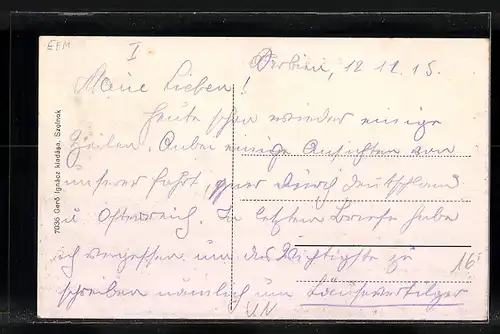 EFM
I
Serbien, 12 11. 15.
Meine Lieben!
Heute schon wieder einige
Zeilen. Anbei einige Ansichten von
unserer Fahrt, quer durch Deutschland
u. Österreich. Im letzten Briefe habe
ich vergessen um das Wichtigste zu
schreiben nämlich um Läusevertilger
16
7036 Gerő Ignácz kiadása, Szolnok